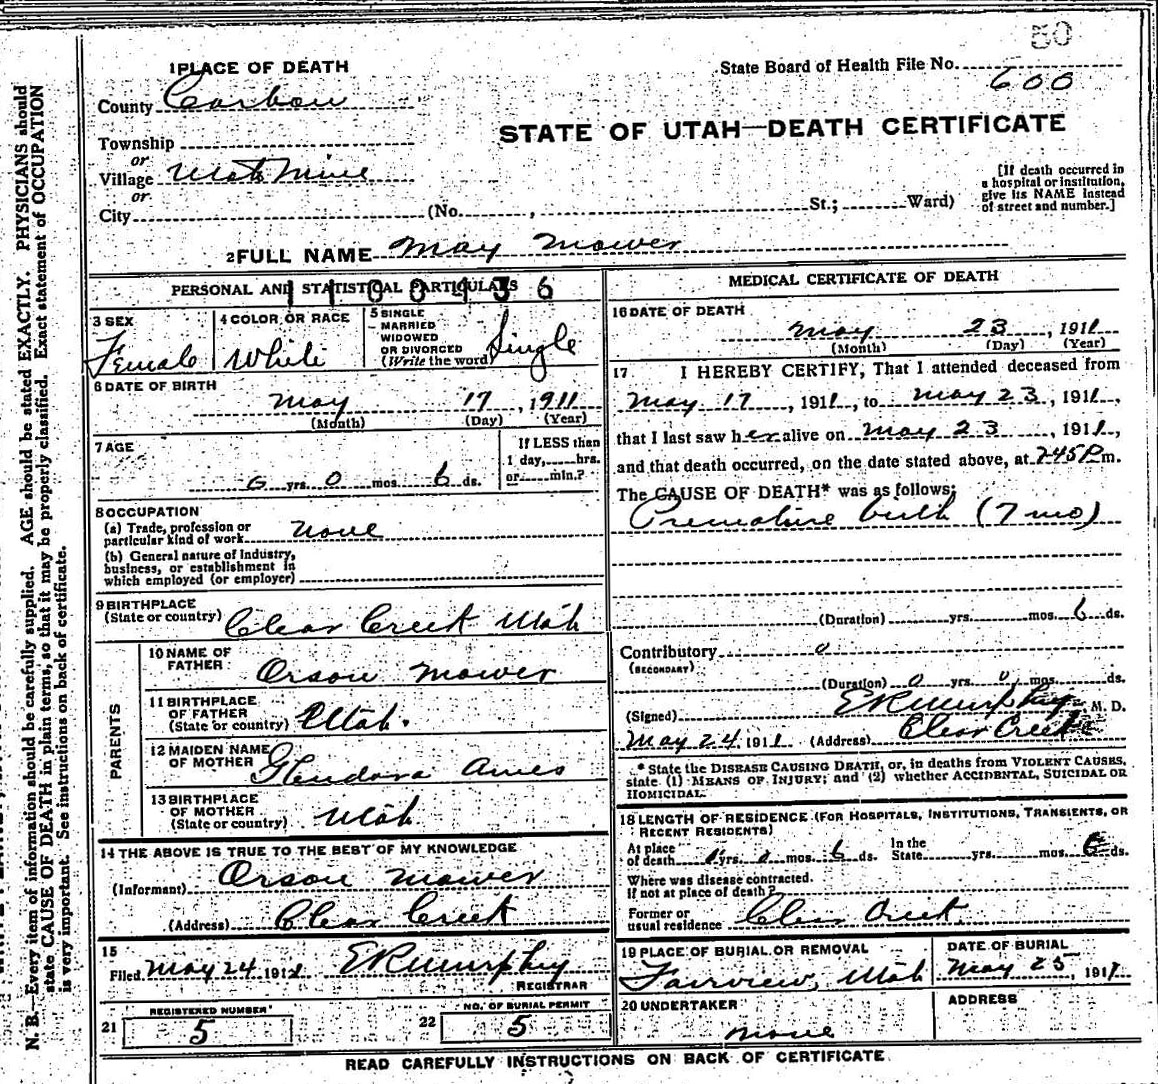 50
1 PLACE OF DEATH
State Board of Health File No. 600
County Carbon
STATE OF UTAH—DEATH CERTIFICATE
Township
or
Village Utah Mine
or
City (No. , St.; Ward)
[If death occurred in
a hospital or institution,
give its NAME instead
of street and number.]
2 FULL NAME May Mower
PERSONAL AND STATISTICAL PARTICULARS
3 SEX
Female
4 COLOR OR RACE
White
5 SINGLE
MARRIED
WIDOWED
OR DIVORCED
(Write the word) Single
6 DATE OF BIRTH
May 17, 1911
(Month) (Day) (Year)
7 AGE
0 yrs. 0 mos. 6 ds.
If LESS than
1 day, hrs.
or min.?
8 OCCUPATION
(a) Trade, profession or
particular kind of work None
(b) General nature of Industry,
business, or establishment in
which employed (or employer)
9 BIRTHPLACE
(State or country) Clear Creek Utah
PARENTS
10 NAME OF
FATHER Orson Mower
11 BIRTHPLACE
OF FATHER
(State or country) Utah.
12 MAIDEN NAME
OF MOTHER Glendora Ames
13 BIRTHPLACE
OF MOTHER
(State or country) Utah
14 THE ABOVE IS TRUE TO THE BEST OF MY KNOWLEDGE
(Informant) Orson Mower
(Address) Clear Creek
15
Filed May 24 1911 ERMurphy
REGISTRAR
21 REGISTERED NUMBER
5
22 NO. OF BURIAL PERMIT
5
MEDICAL CERTIFICATE OF DEATH
16 DATE OF DEATH
May 23, 1911
(Month) (Day) (Year)
17 I HEREBY CERTIFY, That I attended deceased from
May 17, 1911, to May 23, 1911,
that I last saw her alive on May 23, 1911,
and that death occurred, on the date stated above, at 745 P m.
The CAUSE OF DEATH* was as follows:
Premature birth (7 mo)
(Duration) yrs. mos. 6 ds.
Contributory 0
(SECONDARY)
(Duration) 0 yrs. 0 mos. ds.
(Signed) ERMurphy M. D.
May 24, 1911 (Address) Clear Creek
* State the DISEASE CAUSING DEATH, or, in deaths from VIOLENT CAUSES,
state (1) MEANS OF INJURY; and (2) whether ACCIDENTAL, SUICIDAL OR
HOMICIDAL.
18 LENGTH OF RESIDENCE (FOR HOSPITALS, INSTITUTIONS, TRANSIENTS, OR
RECENT RESIDENTS)
At place
of death 0 yrs. 0 mos. 6 ds. In the
State yrs. mos. 6 ds.
Where was disease contracted.
If not at place of death?
Former or
usual residence Clear Creek.
19 PLACE OF BURIAL OR REMOVAL
Fairview, Utah
DATE OF BURIAL
May 25, 1911
20 UNDERTAKER
None
ADDRESS
READ CAREFULLY INSTRUCTIONS ON BACK OF CERTIFICATE
N. B.—Every item of information should be carefully supplied. AGE should be stated EXACTLY. PHYSICIANS should
state CAUSE OF DEATH in plain terms, so that it may be properly classified. Exact statement of OCCUPATION
is very important. See instructions on back of certificate.